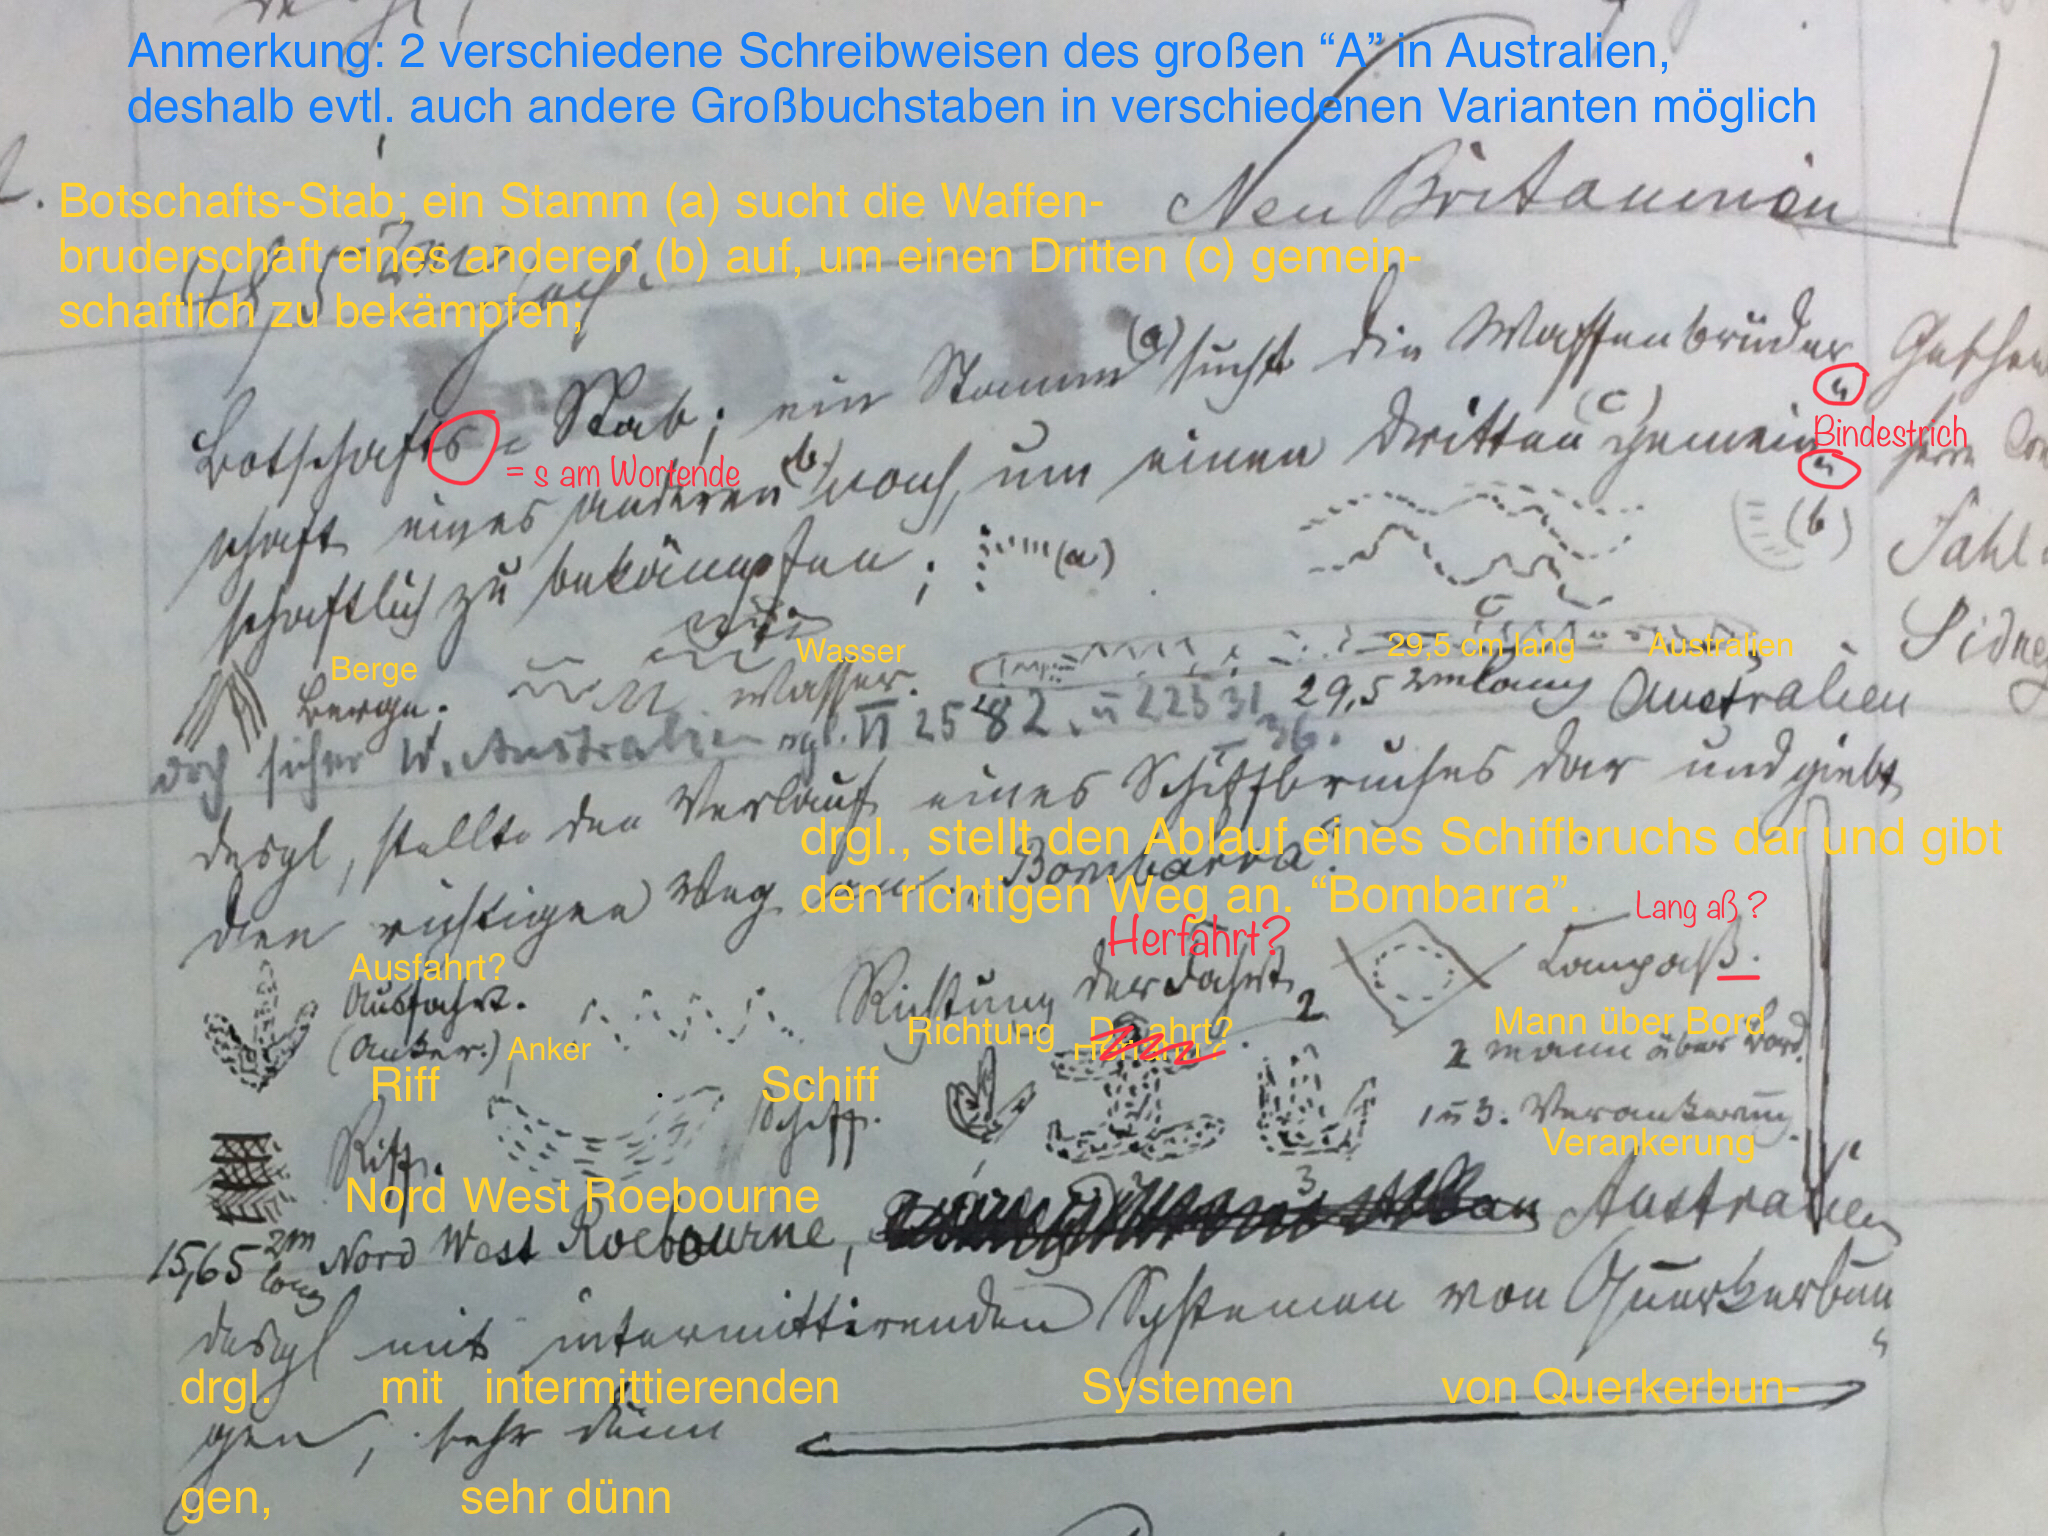 Anmerkung: 2 verschiedene Schreibweisen des großen “A” in Australien,
deshalb evtl. auch andere Großbuchstaben in verschiedenen Varianten möglich
Neu Britannien
Botschafts-Stab; ein Stamm (a) sucht die Waffen-
bruderschaft eines anderen (b) auf, um einen Dritten (c) gemein-
schaftlich zu bekämpfen;
Botschafts = Stab; ein Stamm (a) sucht die Waffenbrüder
Bindestrich
= s am Wortende
schaft eines anderen (b) nach, um einen dritten (c) gemein
schaftlich zu bekämpfen; (a) (b)
Sidney
c
Berge
Wasser
29,5 cm lang
Australien
Berge. Wasser. 29,5 cm lang Australien
doch sicher W. Australien vgl. VI 25 82. u 22531
36.
desgl, stellte den Verlauf eines Schiffbruches dar und giebt
drgl., stellt den Ablauf eines Schiffbruchs dar und gibt
den richtigen Weg an. „Bombarra“.
den richtigen Weg an. “Bombarra”.
Lang aß ?
Herfahrt?
Ausfahrt?
Ausfahrt. Richtung der Fahrt. Compaß.
(Anker.) Anker
Richtung
2
Mann über Bord
2 mann über Bord.
Riff
Schiff
Riff. Schiff. 1 u 3. Verankerung.
Verankerung
3
Nord West Roebourne
15,65 cm lang Nord West Roebourne, Australien
desgl mit intermittirenden Systemen von Querkerbun
drgl. mit intermittierenden Systemen von Querkerbun-
gen, sehr dünn
gen, sehr dünn